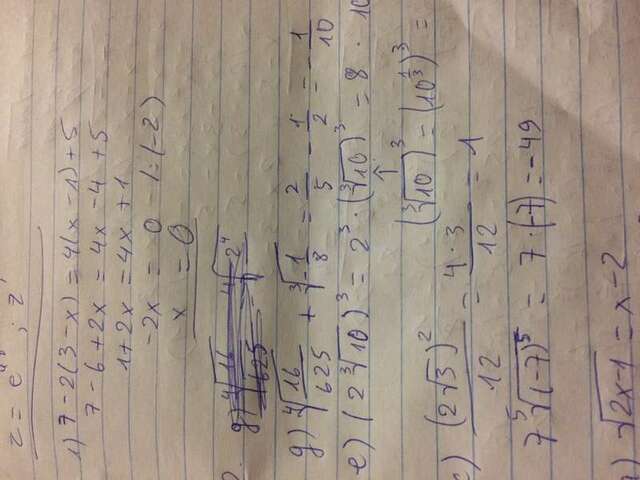 1) 7 - 2(3 - x) = 4(x - 1) + 5
7 - 6 + 2x = 4x - 4 + 5
1 + 2x = 4x + 1
-2x = 0 /:(-2)
x = 0
2.
g) ⁴√(16/625) + ³√(-1/8) = 2/5 - 1/2 = -1/10
e) (2 ³√10)³ = 2³ · (³√10)³ = 8 · 10
(³√10)³ = (10^(1/3))³ =
c) (2√3)²/12 = (4 · 3)/12 = 1
7 ⁵√(-7)⁵ = 7 · (-7) = -49
√(2x-1) = x - 2